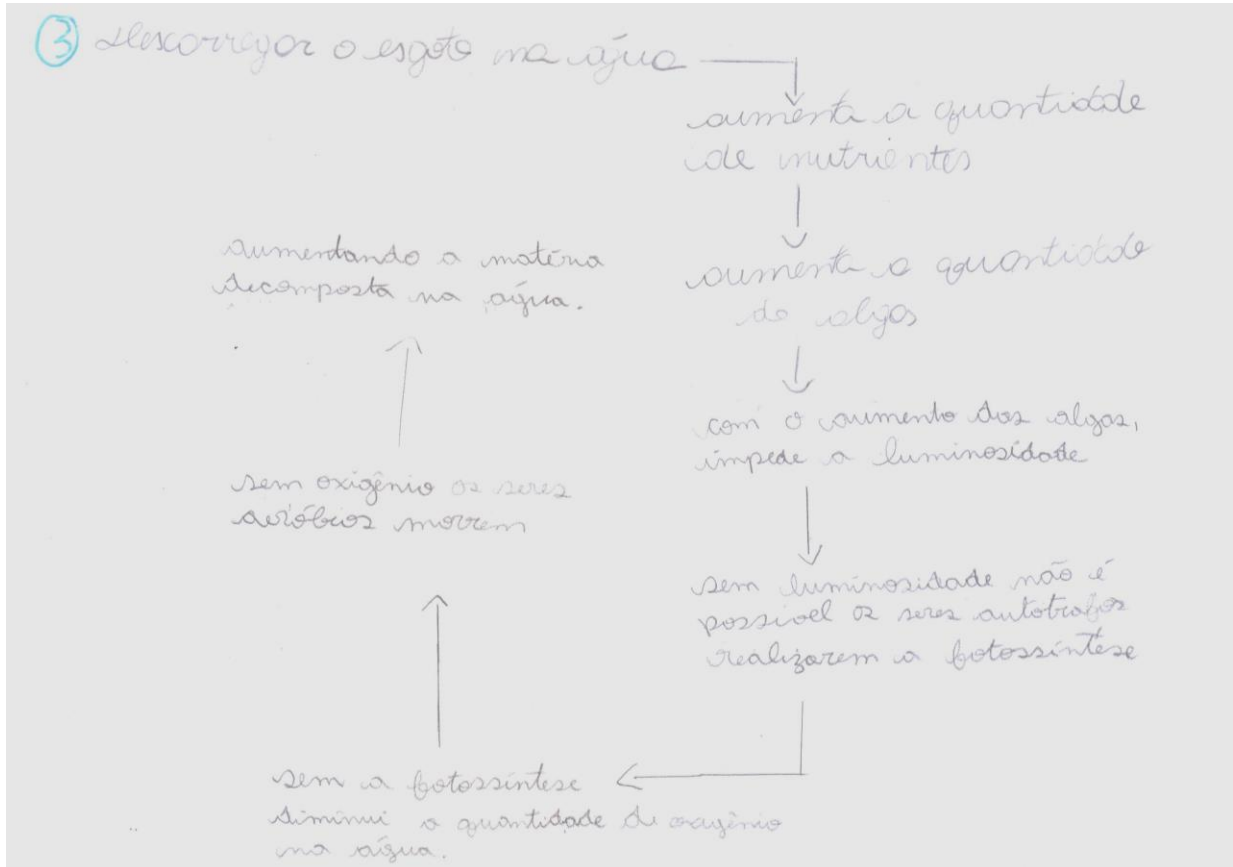 3 Descarregar o esgoto na água
aumenta a quantidade
de nutrientes
aumenta a quantidade
de algas
com o aumento das algas,
impede a luminosidade
sem luminosidade não é
possivel os seres autotrofos
realizarem a fotossíntese
sem a fotossíntese
diminui a quantidade de oxigênio
na água.
sem oxigênio os seres
aeróbios morrem
aumentando a matéria
decomposta na água.